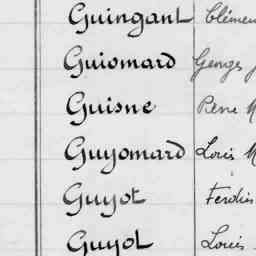 Guingant Clémen
Guiomard Georges J
Guisne Rene M
Guyomard Louis M
Guyot Ferdin
Guyot Louis